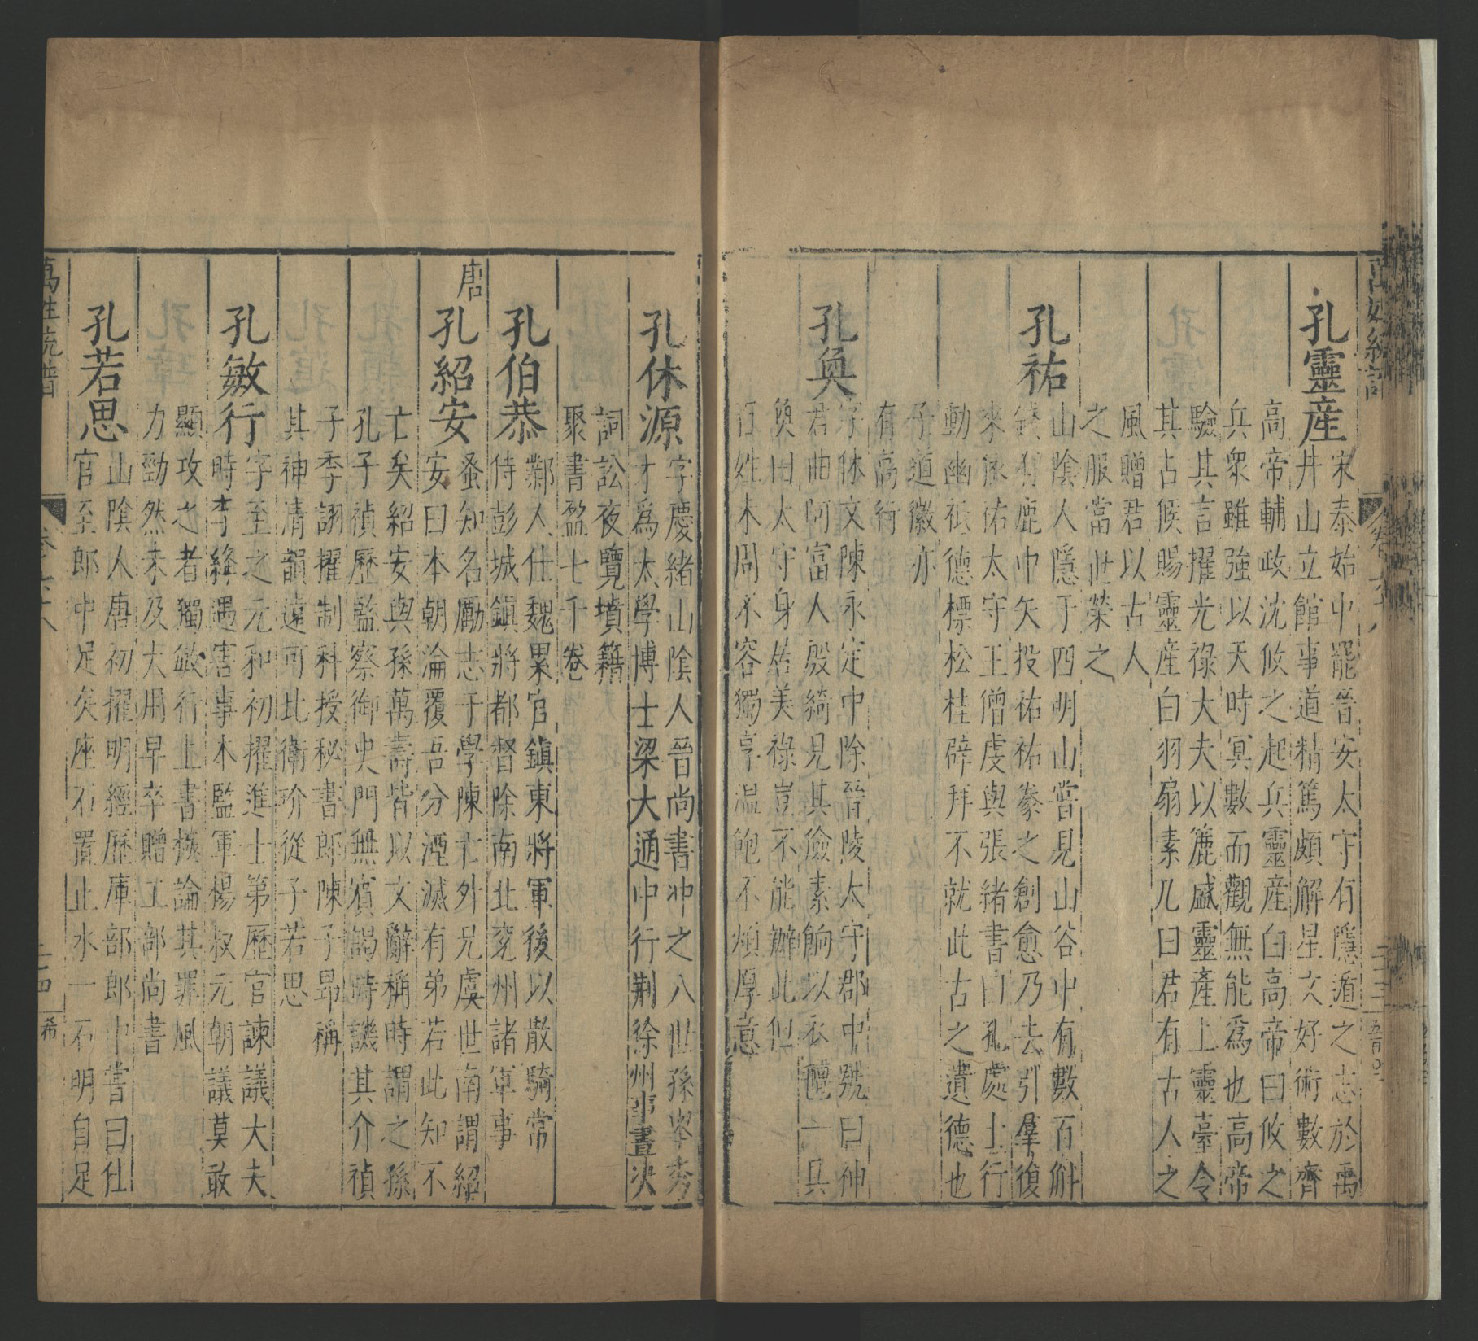 孔靈產
宋泰始中罷晉安太守有隱遁之志於禹
井山立館事道精篤頗解星文好術數齊
高帝輔政沈攸之起兵靈産白高帝曰攸之
兵衆雖強以天時冥數而觀無能爲也高帝
驗其言擢光祿大夫以簏盛靈產上靈臺令
其占候賜靈産白羽扇素几曰君有古人之
風贈君以古人
之服當世榮之
孔祐
山陰人隱于四明山嘗見山谷中有數百斛
鹿中矢投祐祐豢之創愈乃去引羣復
來太守王僧虔與張緒書曰孔處士行
動幽祇德標松桂辟拜不就此古之遺德也
子道徽亦
有高行
孔奐
字休文陳永定中除晉陵太守郡中號曰神
君曲阿富人殷綺見其儉素餉以衣氊一具
奐曰太守身居美祿豈不能辦此但
百姓未周不容獨享温飽不煩厚意
孔休源
字慶緒山陰人晉尚書冲之八世孫舉秀
才爲太學博士梁大通中行荆徐州事晝決
詞訟夜覽墳籍
聚書盈七千卷
孔伯恭
鄴人仕魏累官鎮東將軍後以散騎常
侍彭城鎮將都督除南北兖州諸軍事
唐
孔紹安
蚤知名勵志于學陳亡外兄虞世南謂紹
安曰本朝淪覆吾分湮滅有弟若此知不
亡矣紹安與孫萬壽皆以文辭稱時謂之孫
孔子禎歷監察御史門無賓謁時譏其介禎
子季詡擢制科授秘書郎陳子昻稱
其神清韻遠可比衛玠從子若思
孔敏行
字至之元和初擢進士第歷官諫議大夫
時李絳遇害事本監軍楊叔元朝議莫敢
顯攻之者獨敏行上書極論其罪風
力勁然未及大用早卒贈工部尚書
孔若思
山陰人唐初擢明經歷庫部郎中嘗曰仕
官至郎中足矣座右置止水一石明自足
萬姓統譜